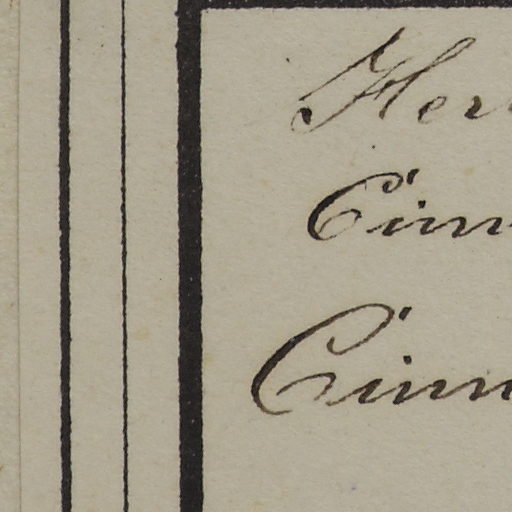 Her
Cinn
Cinn